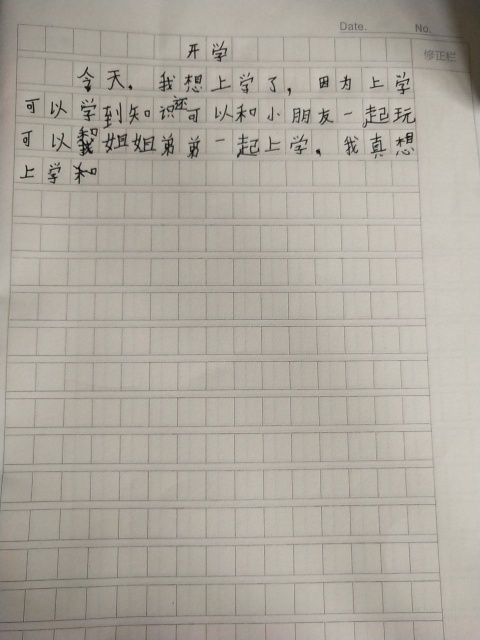 Date. No.
修正栏
开学
今天，我想上学了，因为上学
可以学到知识还可以和小朋友一起玩
可以和我姐姐弟弟一起上学，我真想
上学和